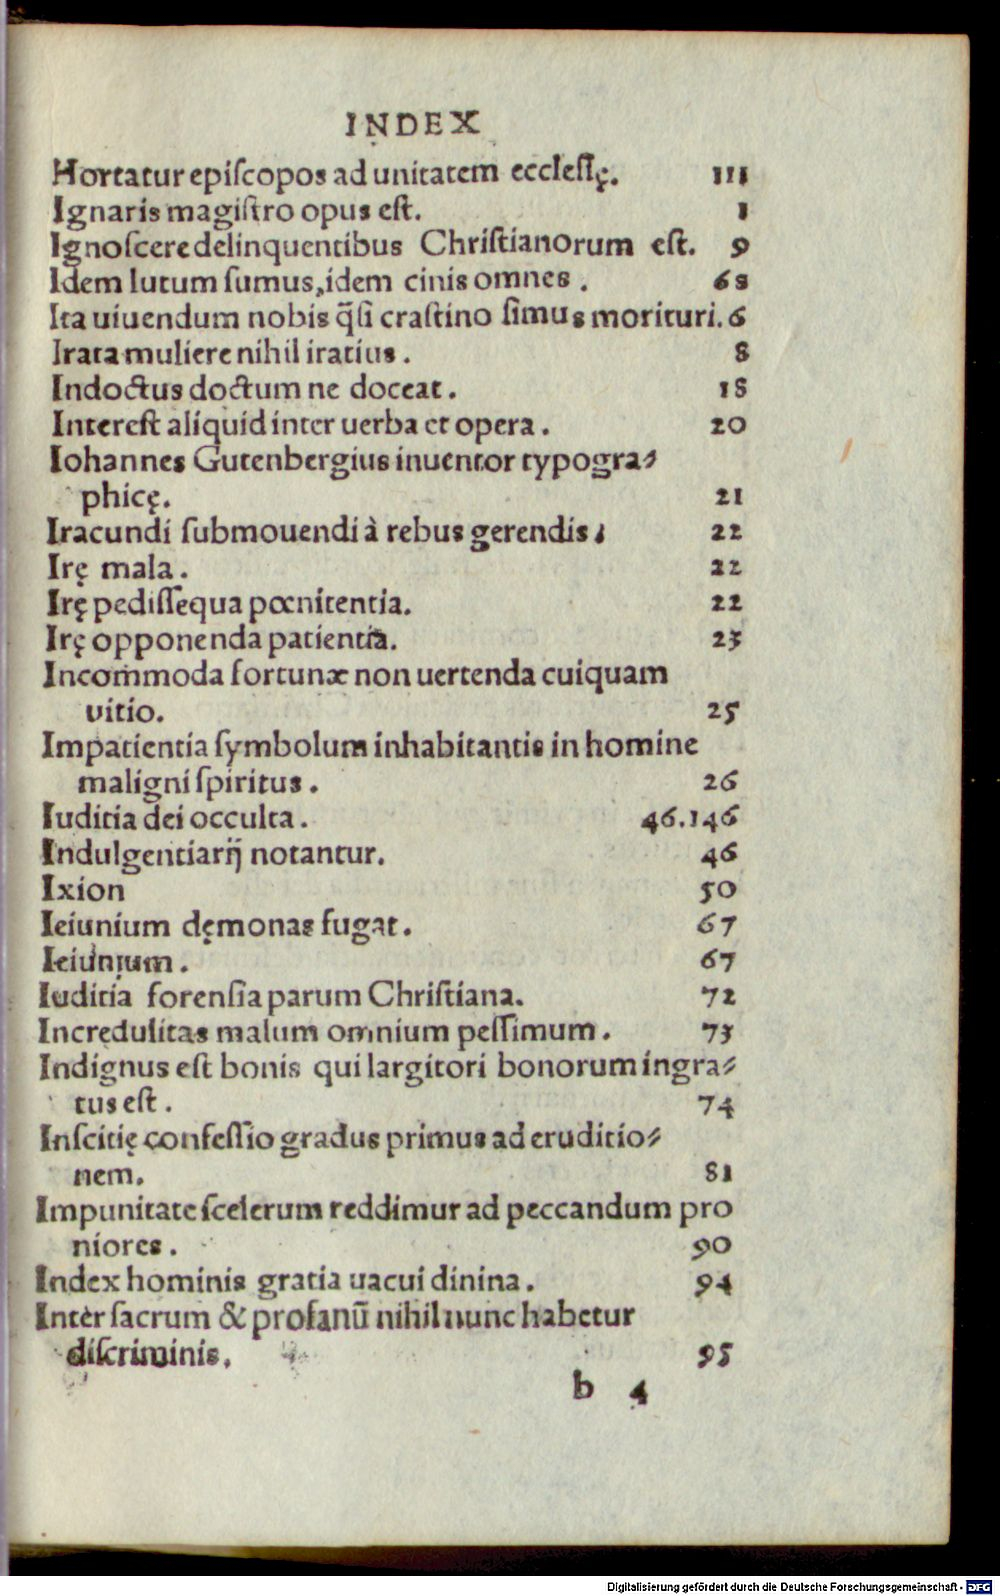 INDEX
Hortatur epiſcopos ad unitatem eccleſię. 111
Ignaris magiſtro opus eſt. 1
Ignoſcere delinquentibus Chriſtianorum eſt. 9
Idem lutum ſumus, idem cinis omnes. 68
Ita uiuendum nobis q̃ſi craſtino ſimus morituri. 6
Irata muliere nihil iratius. 8
Indoctus doctum ne doceat. 18
Intereſt aliquid inter uerba et opera. 20
Iohannes Gutenbergius inuentor typogra⸗
phicę. 21
Iracundi ſubmouendi à rebus gerendis. 22
Irę mala. 22
Irę pediſſequa pœnitentia. 22
Irę opponenda patientia. 23
Incom̃moda fortunæ non uertenda cuiquam
uitio. 25
Impatientia ſymbolum inhabitantis in homine
maligni ſpiritus. 26
Iuditia dei occulta. 46.146
Indulgentiarij notantur. 46
Ixion 50
Ieiunium dęmonas fugat. 67
Ieiunium. 67
Iuditia forenſia parum Chriſtiana. 72
Incredulitas malum omnium peſſimum. 73
Indignus eſt bonis qui largitori bonorum ingra⸗
tus eſt. 74
Inſcitię confeſſio gradus primus ad eruditio⸗
nem. 81
Impunitate ſcelerum reddimur ad peccandum pro
niores. 90
Index hominis gratia uacui dinina. 94
Inter ſacrum & profanũ nihil nunc habetur
diſcriminis. 95
b 4
Digitalisierung gefördert durch die Deutsche Forschungsgemeinschaft - DFG